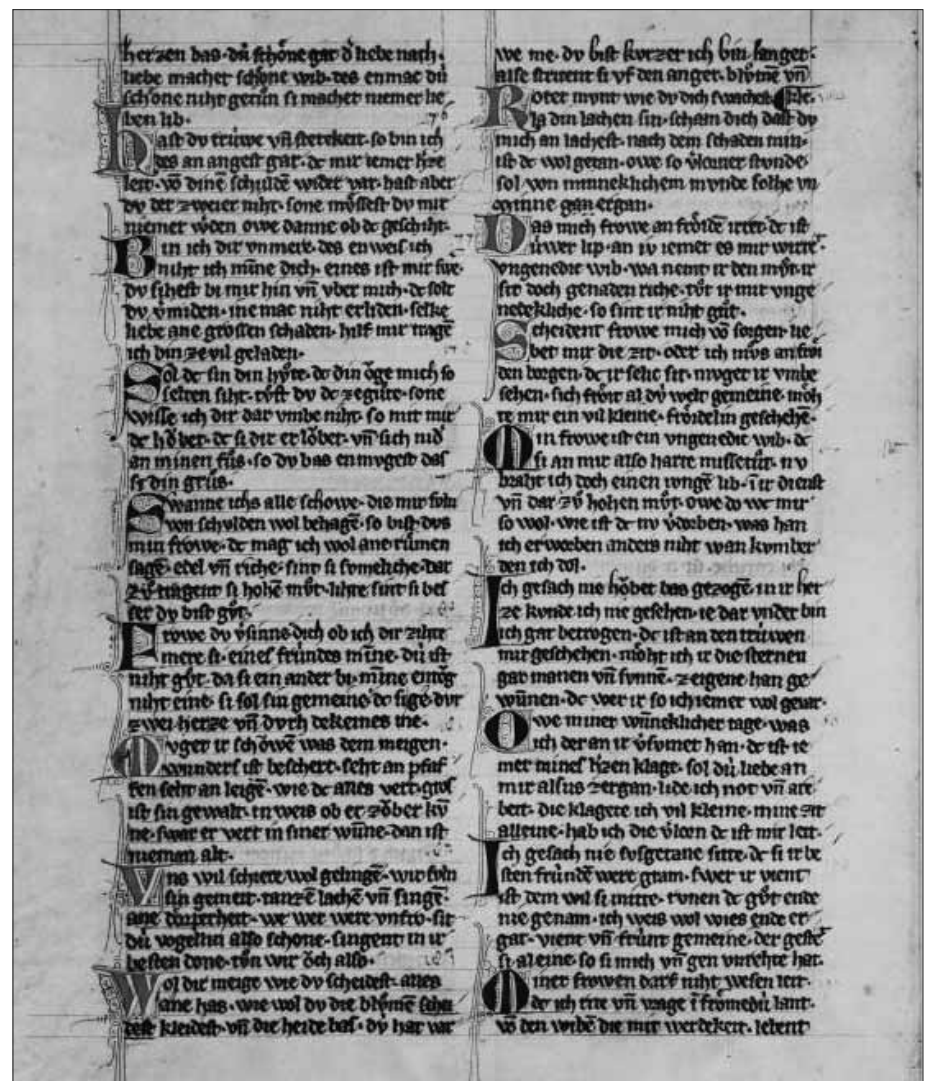 herzen bas· dú schône gat d᾽ liebe nach·
liebe machet schône wib· des enmac dú
schône niht getůn si machet niemer lie
ben lib·
Hast dv trúwe vn̄ stetekeit· so bin ich
des an angest gar· dc mir iemer h᾽ze
leit· vō dinē schuldē wider var· hast aber
dv der zweier niht· sone mússest dv mir
niemer w᾽den owe danne ob dc geschiht·
Bin ich dir vnmere· des enweis ich
niht ich mīne dich· eines ist mir swe᾽
dv sihest bi mir hin vn̄ vber mich· dc solt
dv v᾽miden· ine mac niht erliden· selke
liebe ane grossen schaden· hilf mir tragē
ich bin ze vil geladen·
Sol dc sin din hůte· dc din ôge mich so
selten siht· tůst dv dc ze gůte· sone
wisse ich dir dar vmbe niht· so mit mir
dc hôbet· dc si dir erlôbet· vn̄ sich nid᾽
an minen fůs· so dv bas enmvgest das
si din grůs·
Swanne ichs alle schowe· die mir svln
von schvlden wol behagē· so bist dvs
min frowe· dc mag ich wol ane růmen
sagē· edel vn̄ riche· sint si svmeliche· dar
zů tragent si hohē mvt· lihte sint si bes
ser dv bist gůt·
Frowe dv v᾽sinne dich ob ich dir zihte
mere si· eines frúndes mīne· dú ist
niht gůt· da si ein ander bi· mine entôg
niht eine· si sol sin gemeine· dc si ge· dvr
zwei herze vn̄ dvrch dekeines me·
Mvget ir schôwē was dem meigen·
wunders ist beschert· seht an pfaf
fen seht an leigē· wie dc alles vert· gros
ist sin gewalt· in weis ob er zôber kv̄
ne· swar er vert in siner wūne· dan ist
nieman alt·
Vns wil schiere wol gelingē· wir svln
sin gemeit· tanzē lachē vn̄ singē·
ane dorperheit· we wer were vnfro· sit
dú vogellin also schone· singent in ir
besten done· tůn wir ôch also·
Wol dir meige wie dv scheidest· alles
ane has· wie wol dv die blůmen scha
test kleidest· vn̄ die heide bas· dv hat var
we me· dv bist kvrzer ich bin langer·
alse stritent si vf den anger· blůmē vn̄
Roter mvnt wie dv dich swachest kle·
la din lachen sin· scham dich dast dv
mich an lachest· nach dem schaden min·
ist dc wol getan· owe so v᾽lorner stvnde·
sol von minneklichem mvnde solhe vn
minne gan ergan·
Das mich frowe an frôidē irret· dc ist
úwer lip· an iv iemer es mir wirret·
vngenedic wib· wa nemt ir den mvt· ir
sit doch genaden riche· tůt ir mir vnge
nedekliche· so sint ir niht gůt·
Scheident frowe mich vō sorgen· lie
bet mir die zit· oder ich mvs an frôi
den borgen· dc ir selic sit· mvget ir vmbe
sehen· sich frôit al dv welt gemeine· môh
te mir ein vil kleine· frôidelin geschehē·
Min frowe ist ein vngenedic wib· dc
si an mir also harte missetůt· nv
braht ich doch einen ivngē lib· ī ir dienst
vn̄ dar zů hohen mvt· owe do wc mir
so wol· wie ist dc nv v᾽dorben· was han
ich erworben anders niht wan kvmber
den ich dol·
Ich gesach nie hôbet bas gezogē· in ir her
ze konde ich nie gesehen· ie dar vnder bin
ich gar betrogen· dc ist an den trúwen
mir geschehen· môht ich ir die sternen
gar manen vn̄ svnnē· zeigene han ge
wūnen· dc wer ir so ich iemer wol gevar·
Owe miner wūneklicher tage· was
ich der an ir v᾽svmet han· dc ist ie
mer mines h᾽zen klage· sol dú liebe an
mir alsus zergan· lide ich not vn̄ are
beit· die klagere ich vil kleine· mine zit
alleine· hab ich die v᾽lorn dc ist mir leit·
Ich gesach nie svsgetane sitte· dc si ir be
sten frúndē were gram· swer ir vient
ist· dem wil si mitte· rvnen dc gůt ende
nie genam· ich weis wol wies ende er
gat· vient vn̄ frúnt gemeine· der geste᾽
si aleine· so si mich vn̄ gen vnrehte hat·
Miner frowen darf niht wesen leit·
dc ich rite vn̄ vrage ī frômedú lant·
vō den wibē die mit werdekeit· lebent